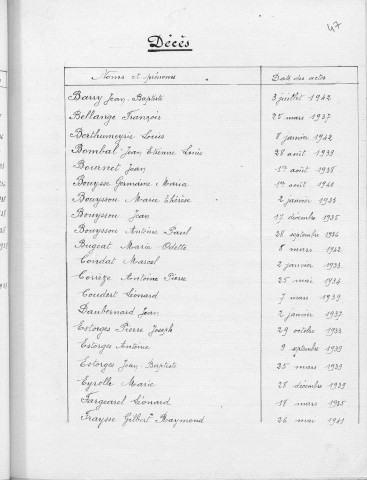 47
Décès
Noms et prénoms Date des actes
Barry Jean-Baptiste 3 juillet 1942
Bellange François 25 mars 1937
Berthumeyrie Louis 8 janvier 1942
Bombal Jean Etienne Louis 28 août 1939
Bournet Jean 1er août 1938
Bouysse Germaine Maria 1er août 1940
Bouyssou Marie Thérèse 2 janvier 1935
Bouyssou Jean 17 décembre 1935
Bouyssou Antoine Paul 28 septembre 1936
Bugeat Marie Odette 8 mars 1942
Condat Marcel 2 janvier 1933
Corrèze Antoine Pierre 25 mai 1934
Coudert Léonard 7 mars 1939
Daubernard Jean 2 janvier 1937
Estorges Pierre Joseph 29 octobre 1933
Estorges Antoine 9 septembre 1939
Estorges Jean-Baptiste 25 mars 1939
Eyrolle Marie 28 décembre 1939
Fargearel Léonard 18 mars 1935
Fraysse Gilbert Raymond 26 mai 1941